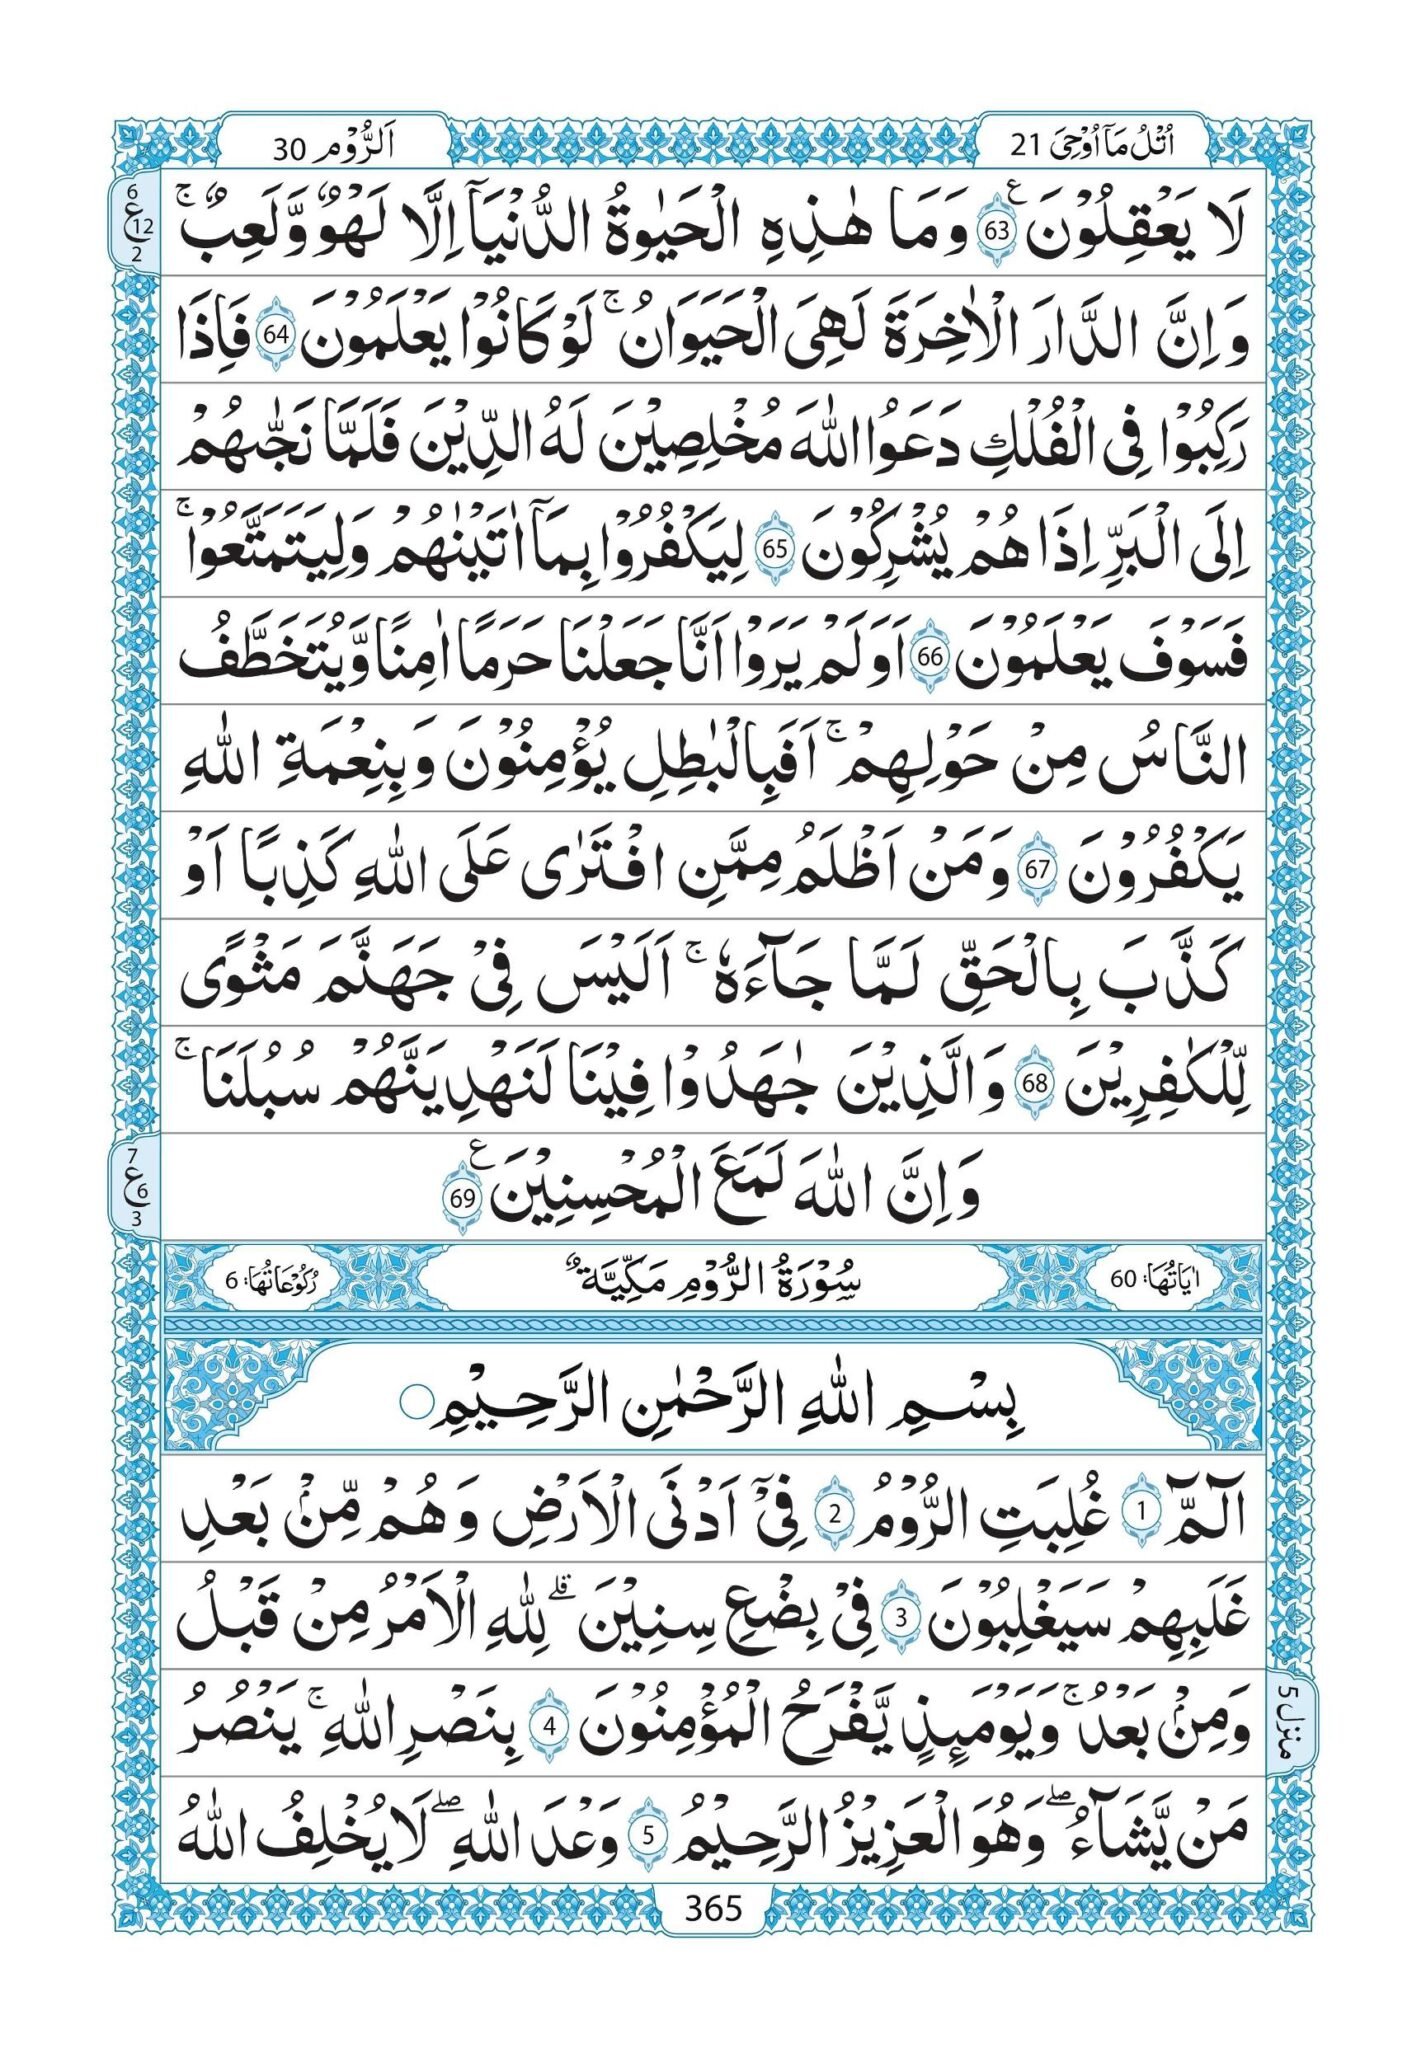 اُتْلُ مَآ اُوْحِیَ 21
اَلرُّوْم 30
لَا يَعْقِلُوْنَ ۧ 63 وَمَا هٰذِهِ الْحَيٰوةُ الدُّنْيَآ اِلَّا لَهْوٌ وَّلَعِبٌ ۚ
وَاِنَّ الدَّارَ الْاٰخِرَةَ لَهِيَ الْحَيَوَانُ ۚ لَوْ كَانُوْا يَعْلَمُوْنَ 64 فَاِذَا
رَكِبُوْا فِى الْفُلْكِ دَعَوُا اللّٰهَ مُخْلِصِيْنَ لَهُ الدِّيْنَ فَلَمَّا نَجّٰىهُمْ
اِلَى الْبَرِّ اِذَا هُمْ يُشْرِكُوْنَ 65 لِيَكْفُرُوْا بِمَآ اٰتَيْنٰهُمْ وَلِيَتَمَتَّعُوْا ۚ
فَسَوْفَ يَعْلَمُوْنَ 66 اَوَلَمْ يَرَوْا اَنَّا جَعَلْنَا حَرَمًا اٰمِنًا وَّيُتَخَطَّفُ
النَّاسُ مِنْ حَوْلِهِمْ ۚ اَفَبِالْبٰطِلِ يُؤْمِنُوْنَ وَبِنِعْمَةِ اللّٰهِ
يَكْفُرُوْنَ 67 وَمَنْ اَظْلَمُ مِمَّنِ افْتَرٰى عَلَى اللّٰهِ كَذِبًا اَوْ
كَذَّبَ بِالْحَقِّ لَمَّا جَآءَهٗ ۚ اَلَيْسَ فِيْ جَهَنَّمَ مَثْوًى
لِّلْكٰفِرِيْنَ 68 وَالَّذِيْنَ جٰهَدُوْا فِيْنَا لَنَهْدِيَنَّهُمْ سُبُلَنَا ۚ
وَاِنَّ اللّٰهَ لَمَعَ الْمُحْسِنِيْنَ ۧ 69
اٰيَاتُهَا: 60 سُوْرَةُ الرُّوْمِ مَكِّيَّةٌ رُكُوْعَاتُهَا: 6
بِسْمِ اللّٰهِ الرَّحْمٰنِ الرَّحِيْمِ
الٓمّٓ 1 غُلِبَتِ الرُّوْمُ 2 فِيْٓ اَدْنَى الْاَرْضِ وَهُمْ مِّنْۢ بَعْدِ
غَلَبِهِمْ سَيَغْلِبُوْنَ 3 فِيْ بِضْعِ سِنِيْنَ ۗ لِلّٰهِ الْاَمْرُ مِنْ قَبْلُ
وَمِنْۢ بَعْدُ ۚ وَيَوْمَىِٕذٍ يَّفْرَحُ الْمُؤْمِنُوْنَ 4 بِنَصْرِ اللّٰهِ ۚ يَنْصُرُ
مَنْ يَّشَآءُ ۖ وَهُوَ الْعَزِيْزُ الرَّحِيْمُ 5 وَعْدَ اللّٰهِ ۖ لَا يُخْلِفُ اللّٰهُ
6
ع 12
2
7
ع 6
3
منزل 5
365